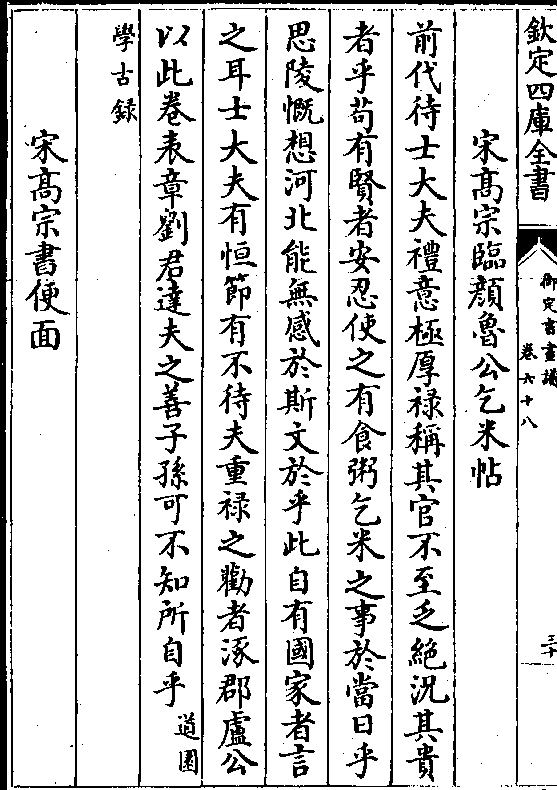 欽定四庫全書
御定書畫譜
卷六十八
三十
宋髙宗臨顔魯公乞米帖
前代待士大夫禮意極厚禄稱其官不至乏絶況其貴
者乎苟有賢者安忍使之有食粥乞米之事於當日乎
思陵慨想河北能無感於斯文於乎此自有國家者言
之耳士大夫有恒節有不待夫重禄之勸者涿郡盧公
以此卷表章劉君達夫之善子孫可不知所自乎道園
學古録
宋髙宗書便面